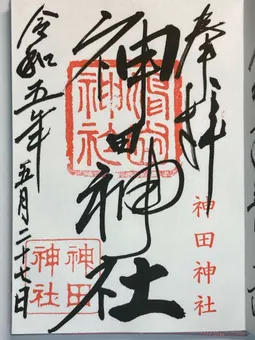 奉拝
神田神社
神田神社
神田神社
神田
神社
令和五年
五月二十七日